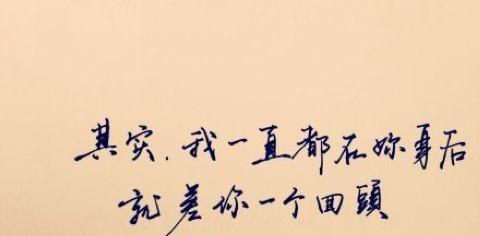 其实.我一直都在妳身后
就差你一个回頭